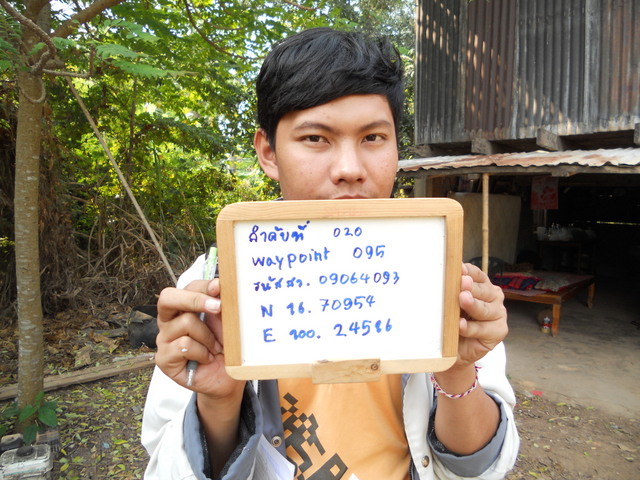 ลำดับที่ 020
waypoint 095
รหัสสว. 09064093
N 16. 70954
E 100. 24516